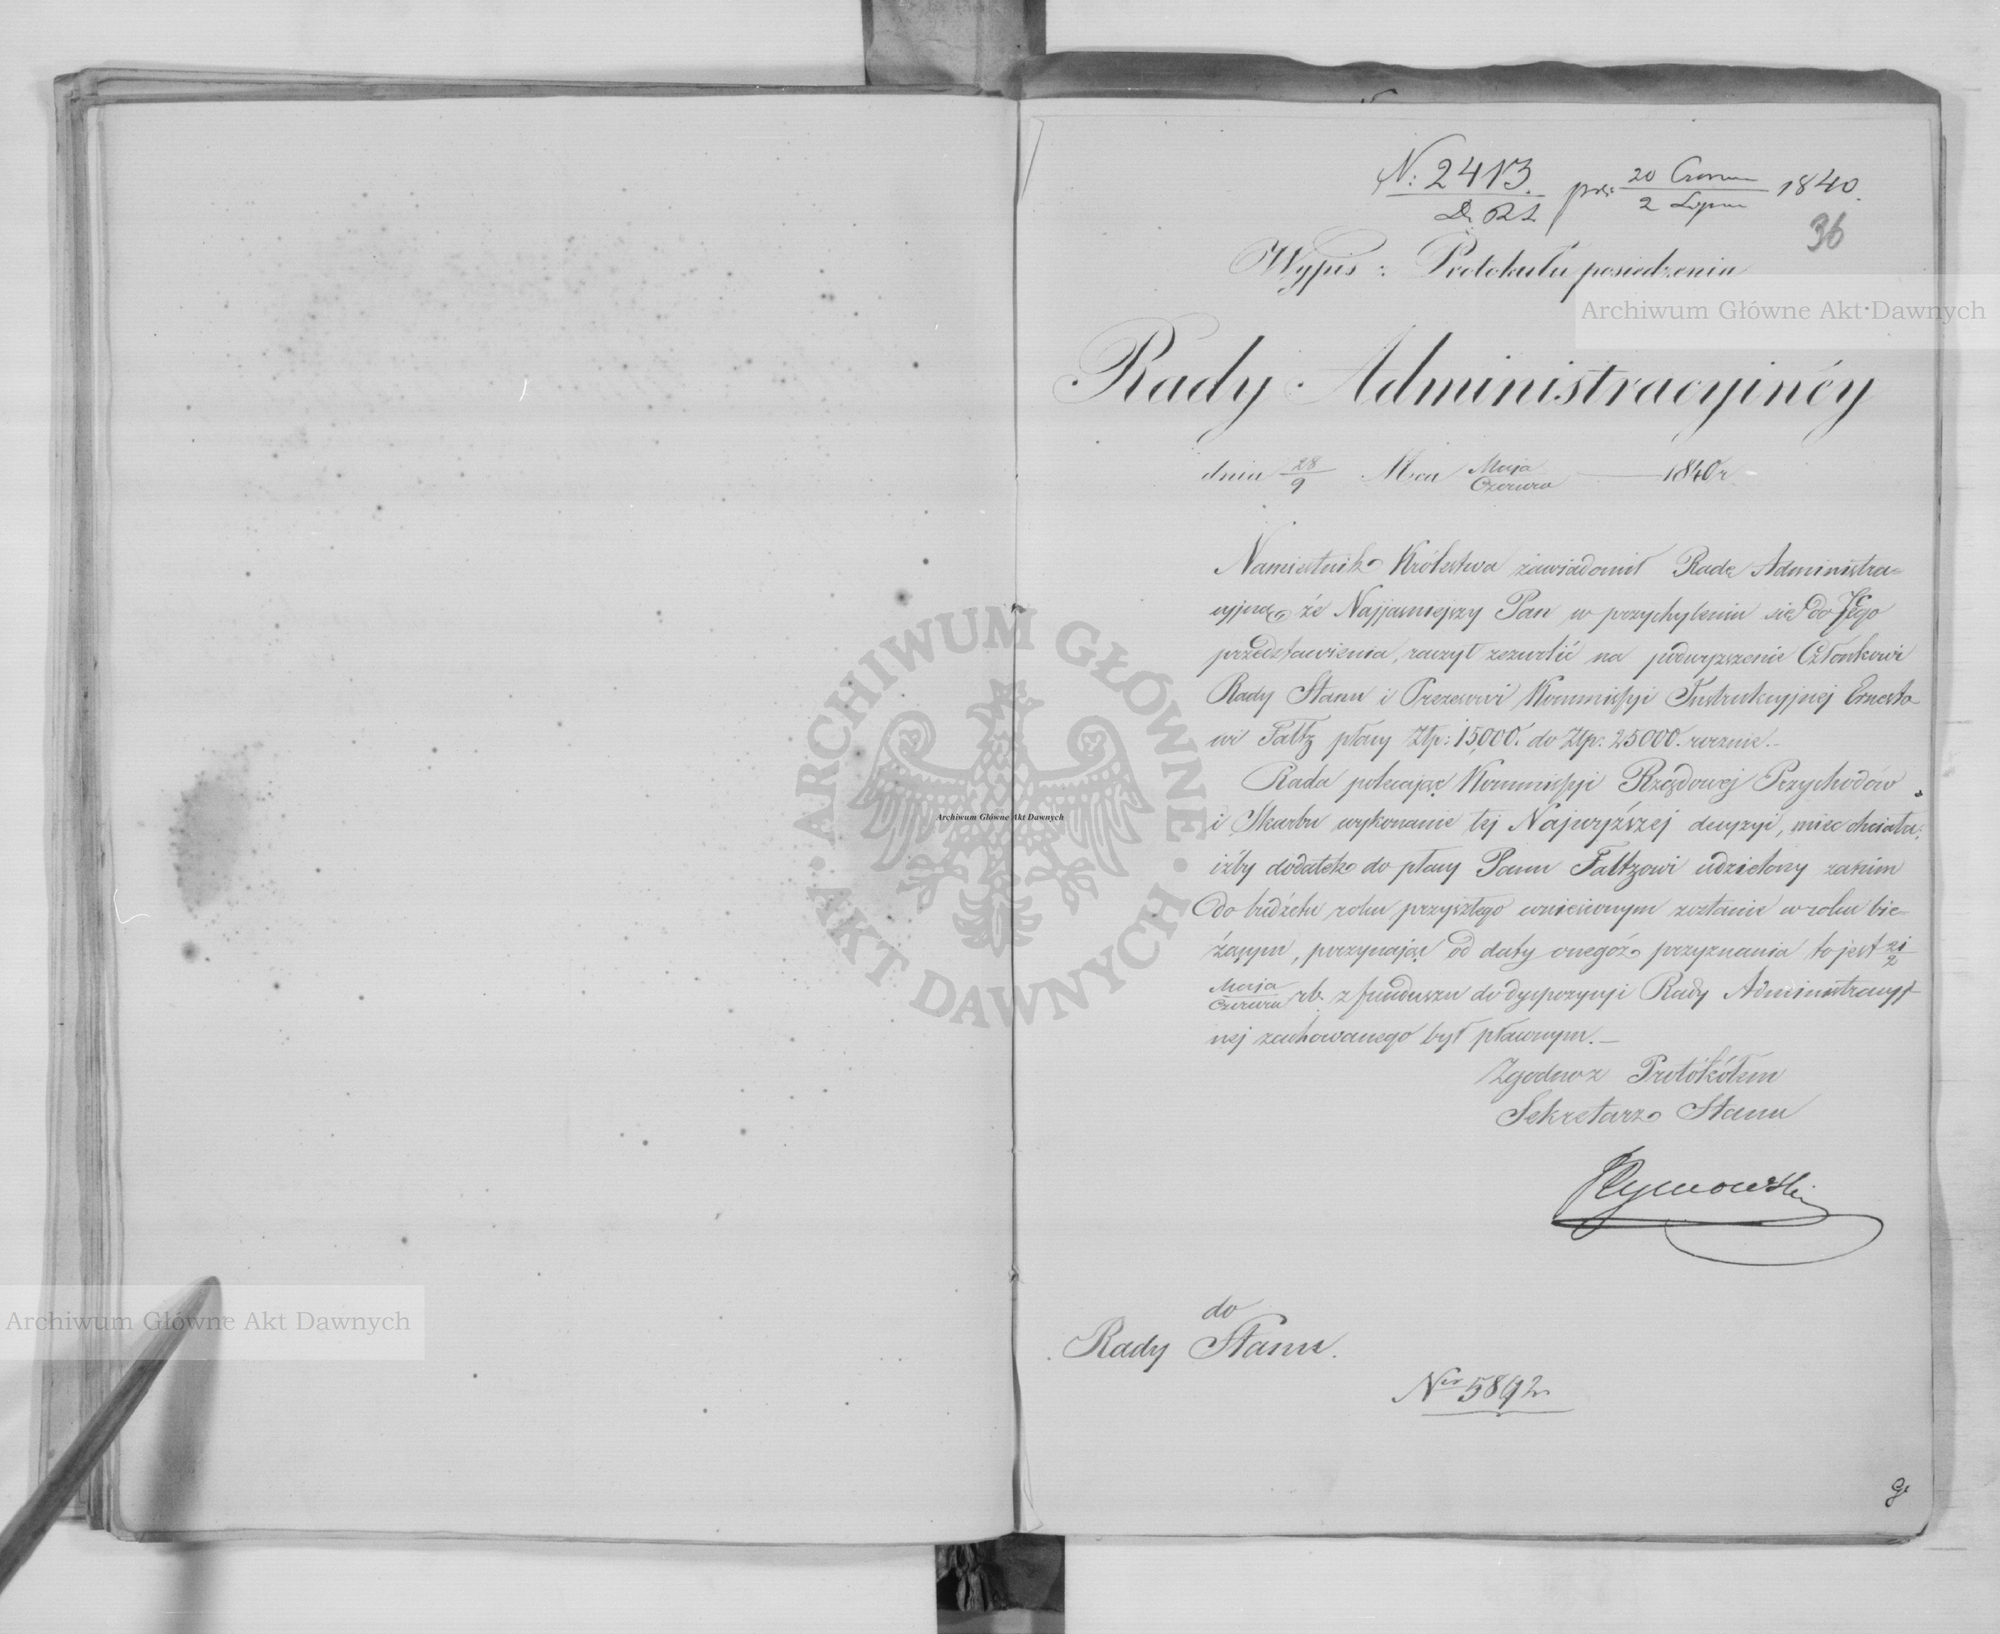 N: 2413.
D. R S. prs: 20 Czerwca / 2 Lipca 1840.
36
Wypis z Protokułu posiedzenia
Rady Administracyinéy
dnia 28/9 Mca Maja/Czerwca 1840 r
Namiestnik Królestwa zawiadomił Radę Administra=
cyjną, że Najjasniejszy Pan w przychyleniu się do Jego
przedstawienia, raczył zezwolić na podwyższenie Członkowi
Rady Stanu i Prezesowi Kommissyi Instrukcyjnej Ernesto-
wi Faltz płacy Złp: 15,000. do Złp: 25000. rocznie.-
Rada polecając Kommissyi Rządowej Przychodów
i Skarbu wykonanie tej Najwyższej decyzyi, miec chciała,
iżby dodatek do płacy Panu Faltzowi udzielony zanim
do budżetu roku przyszłego wniesionym zostanie w roku bie=
żącym, poczynając od daty onegóż przyznania to jest 21/2
Maja/Czerwca rb. z funduszu do dyspozycyi Rady Administracyj-
nej zachowanego był płaconym.-
Zgodno z Protókółem
Sekretarz Stanu
Tymowski
do
Rady Stanu.
Nr 5892
Archiwum Główne Akt Dawnych
Archiwum Główne Akt Dawnych
Archiwum Główne Akt Dawnych
ARCHIWUM GŁÓWNE AKT DAWNYCH